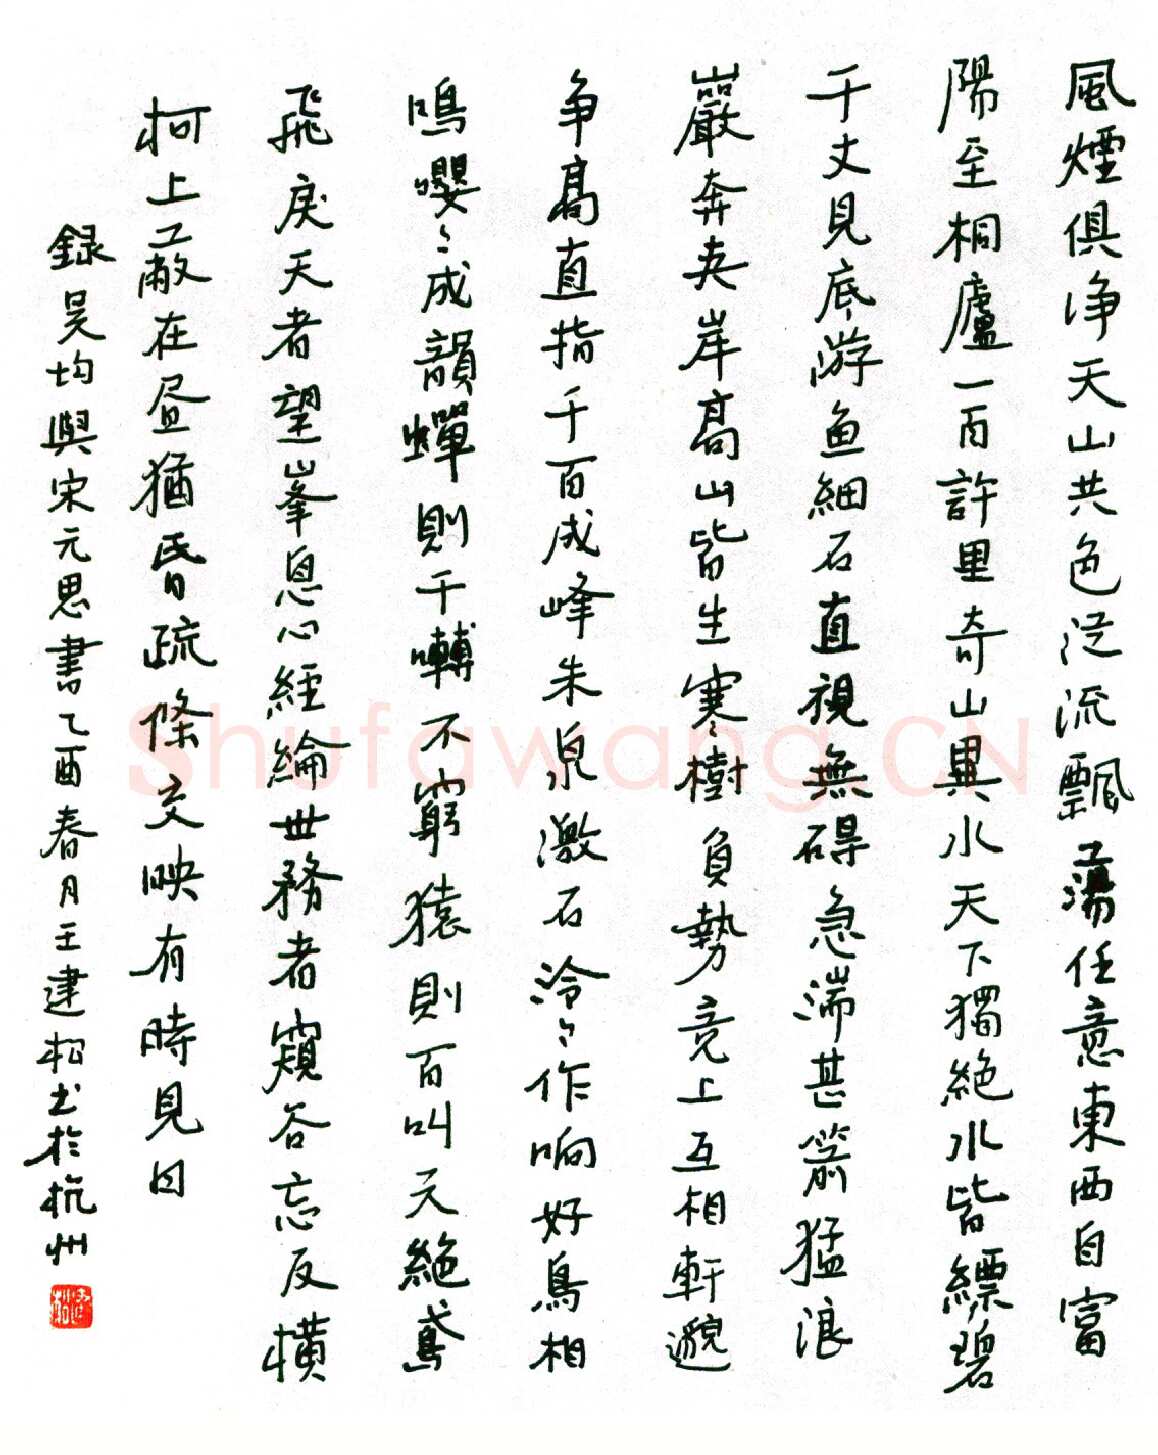 風煙俱净天山共色泛流飄蕩任意東西自富
陽至桐廬一百許里奇山異水天下獨絶水皆縹碧
千丈見底游鱼細石直視無碍急湍甚箭猛浪
巖奔夹岸高山皆生寒樹負勢竞上互相軒邈
争髙直指千百成峰朱泉激石泠泠作响好鳥相
鳴嚶嚶成韻蟬則千囀不窮猿則百叫无絶鳶
飛戾天者望峯息心經綸世務者窺谷忘反横
柯上蔽在昼猶昏疏條交映有時見日
録吴均與宋元思書乙酉春月王建松书於杭州
Shufawang.CN